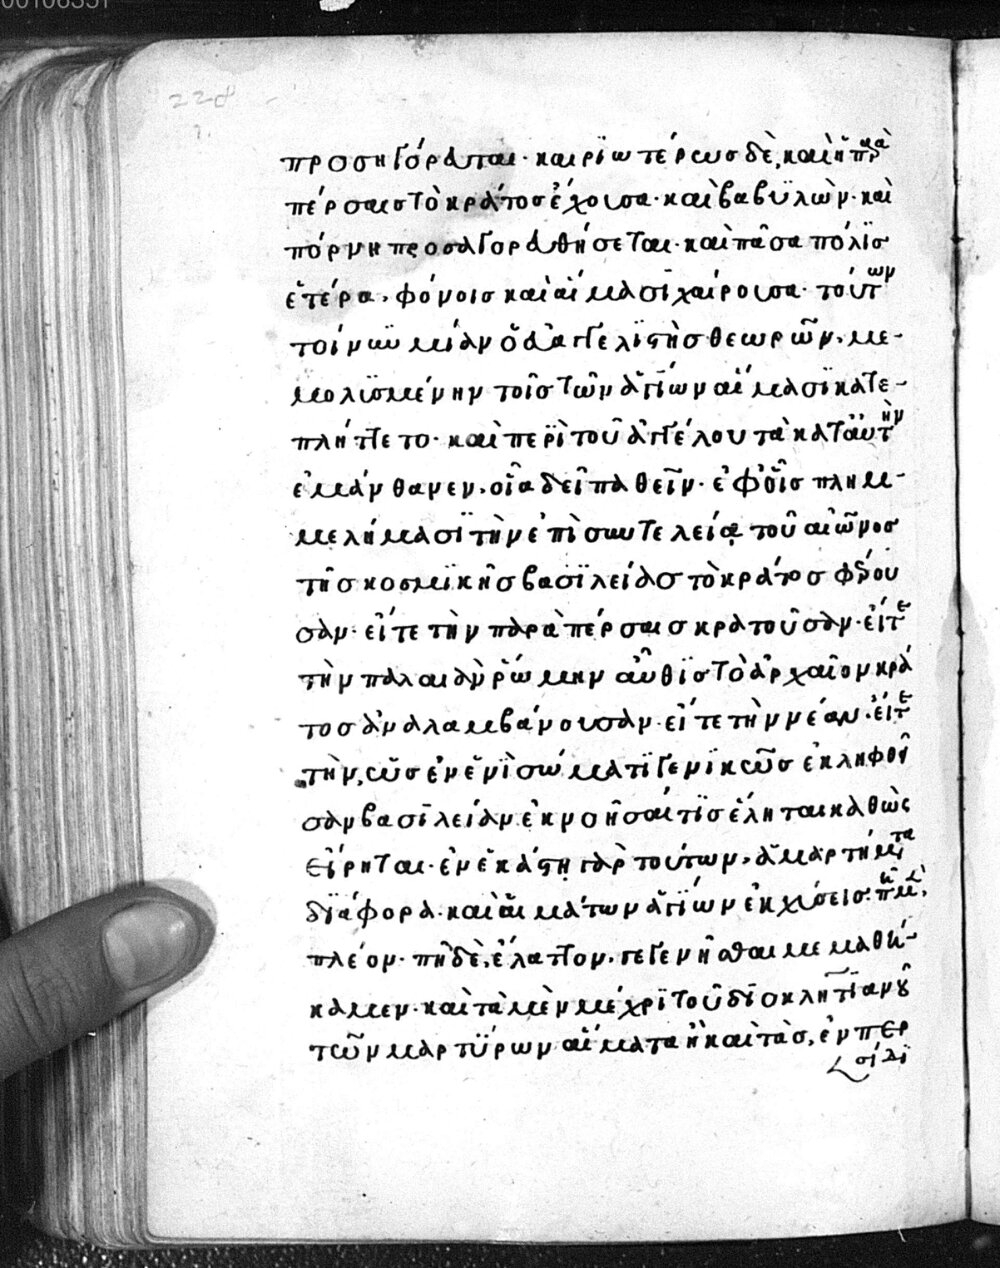 228
προσηγόρευται· καιριωτέρως δὲ, καὶ ἡ παρὰ
πέρσαις τὸ κράτος ἔχουσα· καὶ βαβυλὼν· καὶ
πόρνη προσαγορευθήσεται· καὶ πᾶσα πόλις
ἑτέρα, φόνοις καὶ αἵμασι χαίρουσα· τούτων
τοίνυν μίαν ὁ εὐαγγελιστὴς θεωρῶν, με-
μολισμένην τοῖς τῶν ἁγίων αἵμασι κατε-
πλήττετο· καὶ περὶ τοῦ ἀγγέλου τὰ κατ' αὐτὴν
ἐμάνθανεν, οἷα δεῖ παθεῖν· ἐφ' οἷς πλημ-
μελήμασι τὴν ἐπὶ συντελεία τοῦ αἰῶνος
τῆς κοσμικῆς βασιλείας τὸ κράτος φέρου
σαν· εἴτε τὴν παρὰ πέρσαις κρατοῦσαν· εἴτε
τὴν παλαιὰν ῥώμην αὖθις τὸ ἀρχαῖον κρά
τος ἀναλαμβάνουσαν· εἴτε τὴν νέαν· εἴτε
τὴν, ὡς ἐν ἑνὶ σώματι γενικῶς ἐκληφθεῖ
σαν βασιλείαν ἐκνοῆσαί τις ἕληται καθὼς
εἴρηται· ἐν ἑκάστη γὰρ τούτων, ἁμαρτήματα
διάφορα· καὶ αἱμάτων ἁγίων ἐκχύσεις· πῆ μὲν,
πλέον· πῆ δὲ, ἔλαττον, γεγενῆσθαι μεμαθή-
καμεν· καὶ τὰ μὲν μέχρι τοῦ διοκλητιανοῦ
τῶν μαρτύρων αἵματα ἢ καὶ τὰς, ἐν περ
σίδι